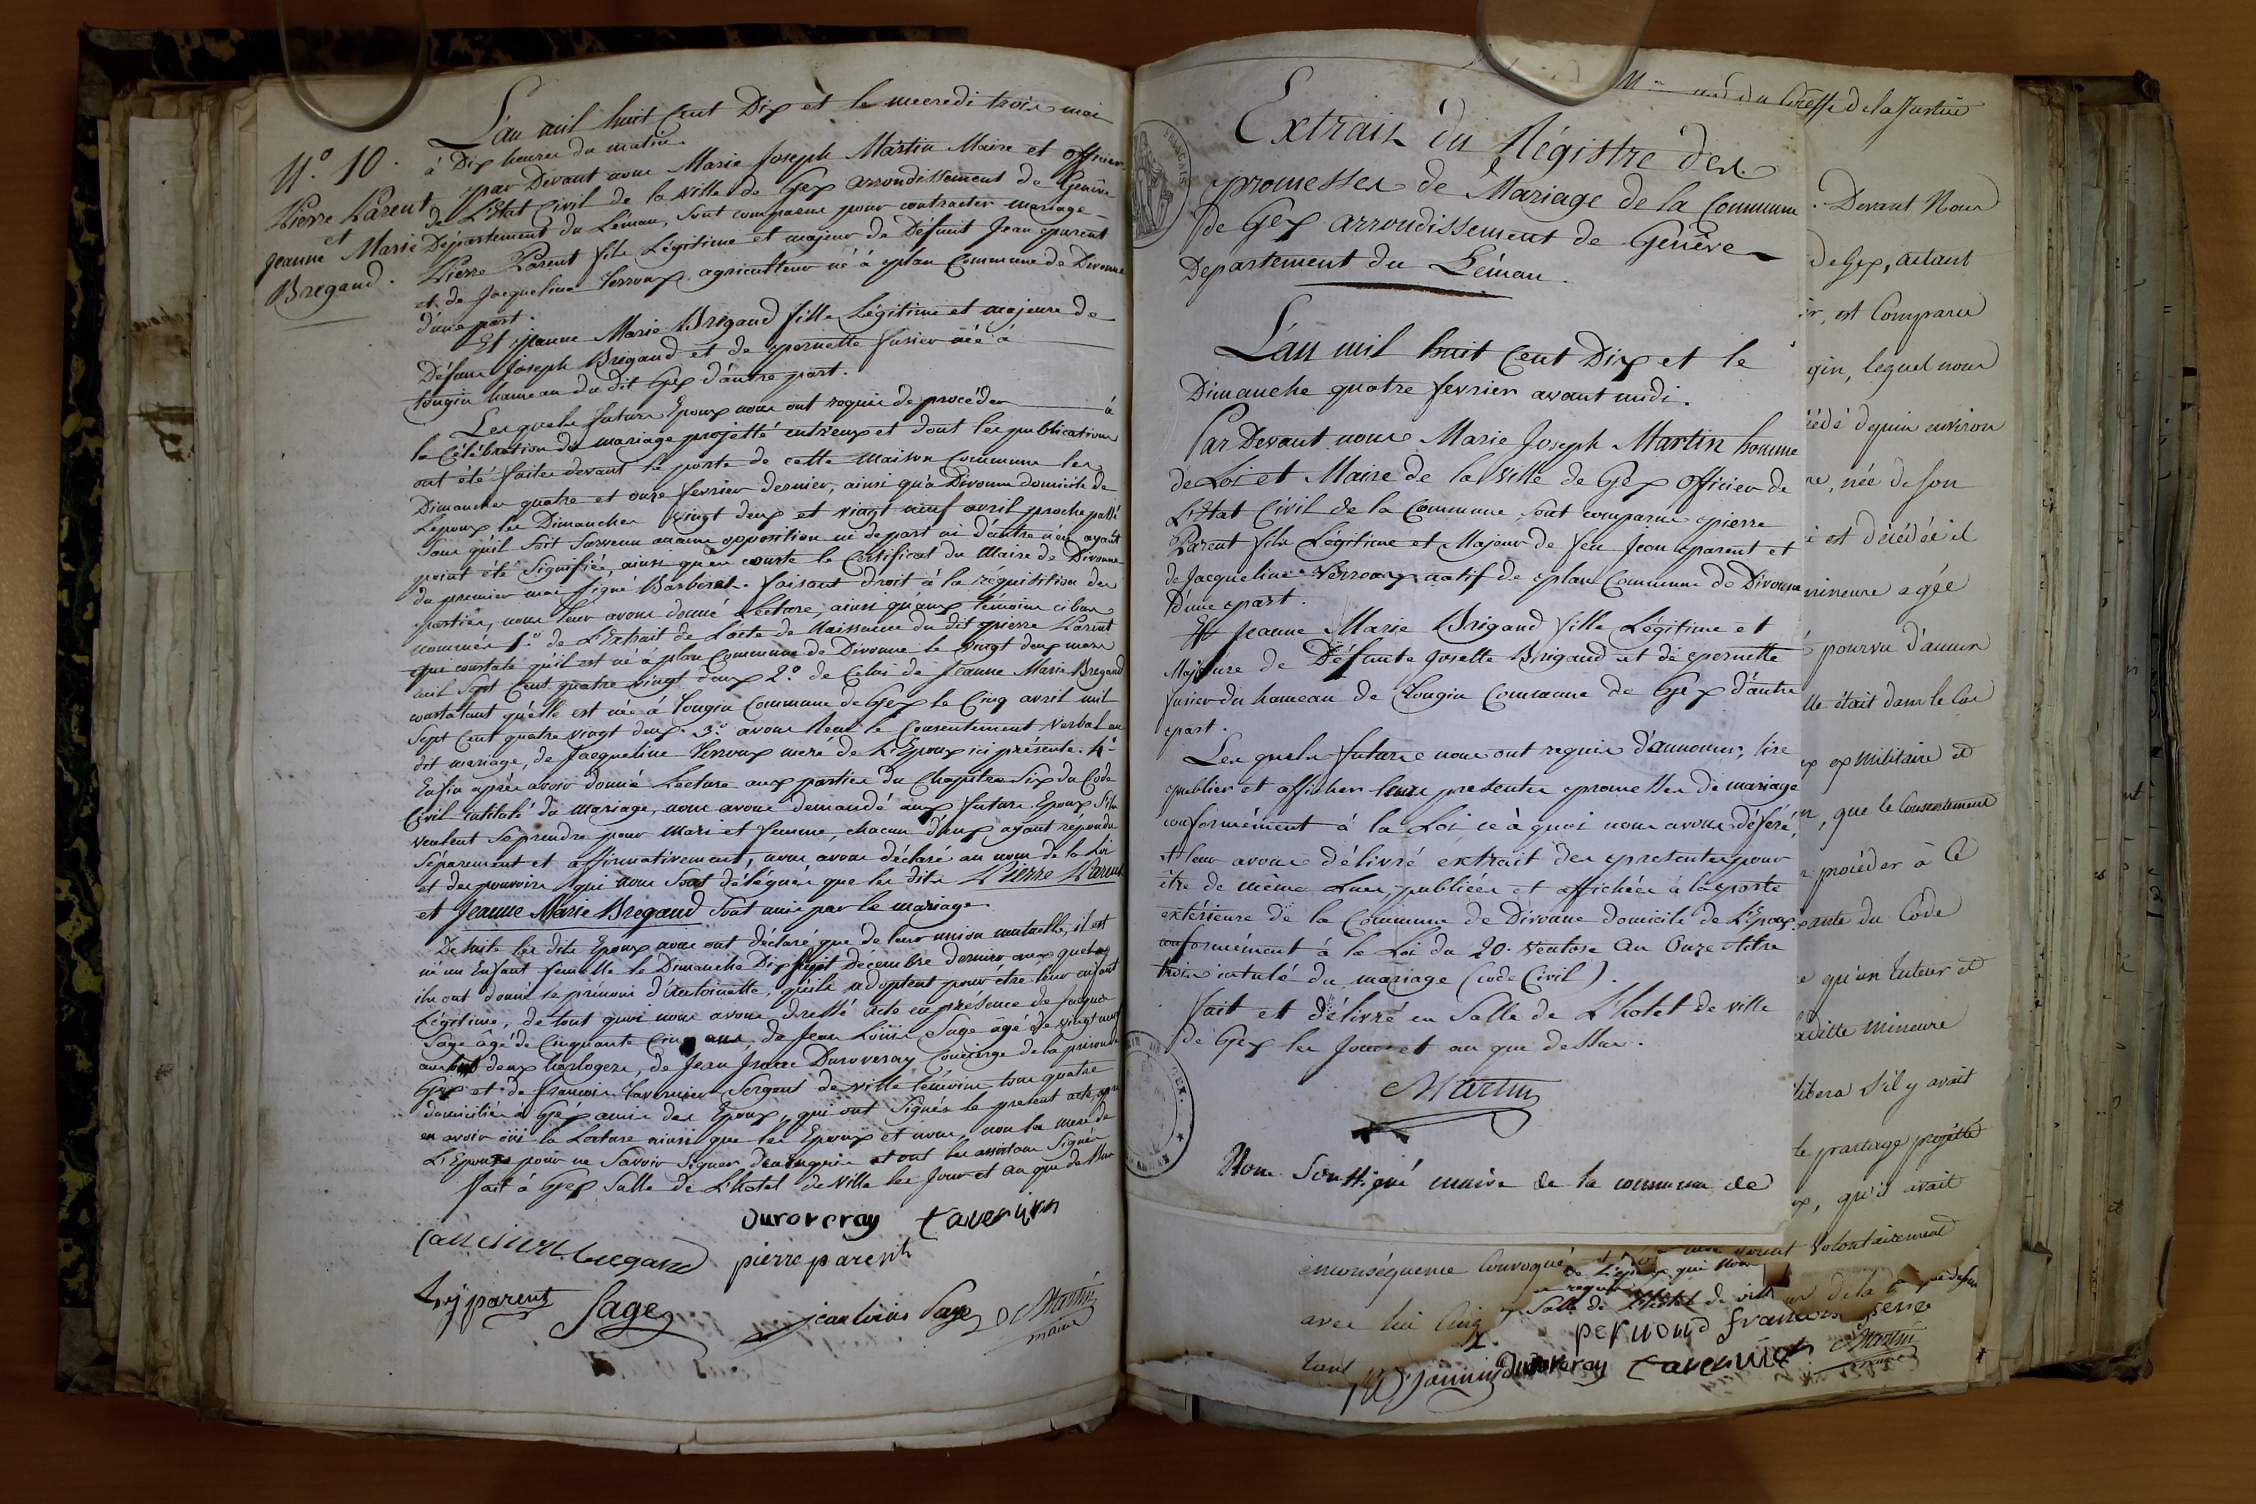 N.o 10.
Pierre Parent
et
Jeanne Marie
Bregand.
L'an mil huit Cent Dix et le mecredi trois mai
à Dix heures du matin
par Devant nous Marie Joseph Martin Maire et officier
de L'Etat Civil de la ville de Gex arrondissement de Genêve
Département du Léman, Sont comparus pour contracter mariage
Pierre Parent fils Légitime et majeur de Défunt Jean parent
et de Jacqueline Verroux agriculteur né à plan Commune de Divonne
d'une part.
Et jeanne Marie Brigand fille Légitime et majeure de
Défunt Joseph Bregand et de pernette fusier née à
tougin hameau du dit Gex d'autre part.
Lesquels futurs Epoux nous ont requis de procéder à
la Célébration du mariage projetté entr'eux et dont les publications
ont été faites devant la porte de cette maison Commune les
Dimanches quatre et onze fevrier dernier, ainsi qu'à Divonne domicile de
L'epoux les Dimanches vingt deux et vingt neuf avril proche passé
Sans qu'il Soit Survenu aucune opposition ni de part ni d'autre n'en ayant
point été Signifiée ainsi qu'en conste le Certificat du Maire de Divonne
du premier mai Signé Barberat. faisant droit à la réquisition des
parties, nous leur avons donné Lecture, ainsi qu'aux témoins ci bas
nommés 1.o de L'Extrait de L'acte de Naissance du dit pierre Parent
qui constate qu'il est né à plan Commune de Divonne le vingt deux mars
mil Sept Cent quatre vingt deux 2.o de Celui de Jeanne Marie Bregand
constatant qu'elle est née à Tougin Commune de Gex le Cinq avril mil
Sept Cent quatre vingt deux. 3.o avons Reçu le Consentement verbal au
dit mariage, de Jacqueline Verroux mere de L'Epoux ici présente. 4.o
Enfin après avoir donné Lecture aux parties du Chapitre Six du Code
Civil intitulé du mariage, nous avons demandé aux futurs Epoux S'ils
veulent Se prendre pour mari et femme, chacun d'eux ayant répondu
Séparement et affirmativement, nous avons déclaré au nom de la Loi
et des pouvoirs qui nous Sont délégués que les dits Pierre Parent
et Jeanne Marie Bregand Sont unis par le mariage
De Suite les dits Epoux nous ont déclaré que de leur union mutuelle, il est
né un Enfant femelle le Dimanche Dix Sept Décembre dernier auquel
ils ont donné le prénom d'Antoinette, qu'ils adoptent pour être leur enfant
Légitime, de tout quoi nous avons dressé acte en presence de Jaques
Sage agé de Cinquante Cinq ans, de Jean Louis Sage âgé de vingt neuf
ans deux horlogers, de Jean Duroveray Concierge de la prison de
Gex et de francois Tavernier Sergent de ville témoins tous quatre
domiciliés à Gex amis des Epoux, qui ont Signés le present acte, après
en avoir oüi la Lecture ainsi que les Epoux et nous, non la mere de
L'Epoux pour ne Savoir Signer de ce enquis et ont les assistans Signés
fait à Gex Salle de L'hotel de Ville les Jour et an que deSsus
Duroveray tavernier
bregand pierre parent
parent Sage jean louis Sage Martin
maire
Extrait du Régistre des
promesses de Mariage de la Commune
de Gex arrondissement de Genêve
Departement du Léman.
L'an mil huit Cent Dix et le
Dimanche quatre fevrier avant midi.
Par Devant nous Marie Joseph Martin homme
de Loi et Maire de la Ville de Gex Officier de
L'Etat Civil de la Commune, sont comparus pierre
Parent fils Légitime et Majeur de feu Jean parent et
de Jacqueline Verroux natif de plan Commune de Divonne
D'une part.
Et Jeanne Marie Brigand fille Légitime et
Majeure de Défunte Josette Brigand et de pernette
fusier du hameau de Tougin Commune de Gex d'autre
part.
Lesquels futurs nous ont requis d'annoncer, lire
publier et afficher leurs presentes promesses de mariage
conformément à la Loi ce à quoi nous avons déferé,
et leur avons délivré extrait des presentes pour
être de même Lues, publiées et affichées à la porte
extérieure de la Commune de Divonne domicile de L'Epoux
conformément à la Loi du 20. Ventose an Onze titre
trois intulé du mariage (code Civil).
Fait et délivré en Salle de L'hotel de ville
de Gex les Jour et an que deSsus.
Martin
Nous Soussigné maire de la commune de
du Greffe de la Justice
Devant Nous
de Gex, autant
est Comparu
gin, lequel nous
dépuis environ
née de son
est décédée il
mineure agée
pourvu d'aucun
lle était dans le Cas
ex militaire et
que le Consentement
procéder à Ce
du Code
qu'un tuteur et
laditte mineure
libera S'il y avait
le mariage projetté
qu'il avait
volontairement
en conséquence Convoqué
avec lui Cinq
tant
Salle de L'hotel de ville
pernond francois
Duroveray tavernier Martin
maire